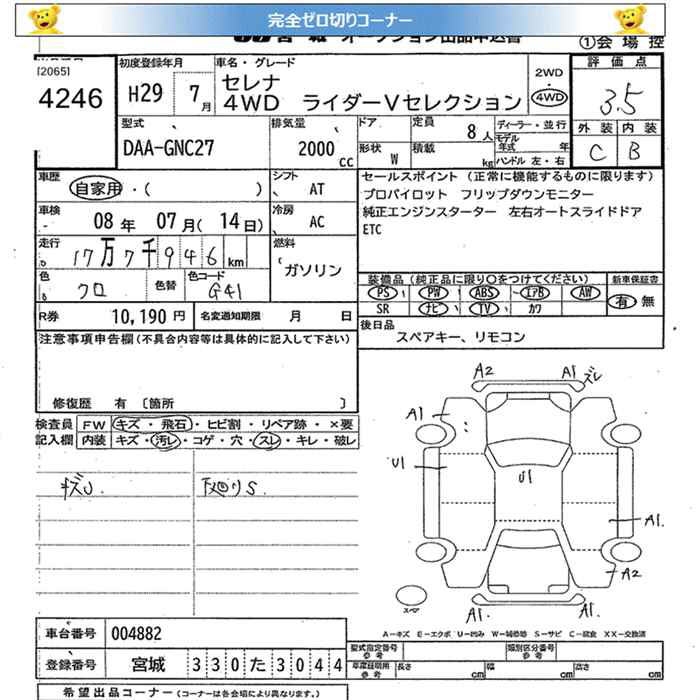 完全ゼロ切りコーナー
宮城 オークション出品申込書 ①会場控
[2065] 4246
初度登録年月 H29 7月
車名・グレード セレナ
4WD ライダーVセレクション
2WD 4WD
評価点 3.5
外装 内装
C B
型式 DAA-GNC27
排気量 2000cc
ドア
形状 W
定員 8人
積載 kg
ディーラー・並行
モデル年式 年
ハンドル 左・右
車歴 自家用・( )
シフト AT
車検 08年 07月(14日)
冷房 AC
走行 17万7千946km
燃料 ガソリン
色 クロ 色替 色コード G41
R券 10,190円 名変通知期限 月 日
セールスポイント (正常に機能するものに限ります)
プロパイロット フリップダウンモニター
純正エンジンスターター 左右オートスライドドア
ETC
装備品(純正品に限り○をつけてください) 新車保証書
PS PW ABS エアB AW 有 無
SR ナビ TV カワ
後日品
スペアキー、リモコン
注意事項申告欄(不具合内容等は具体的に記入して下さい)
修復歴 有 〔箇所 〕
検査員記入欄
FW キズ・飛石・ヒビ割・リペア跡・×要
内装 キズ・汚レ・コゲ・穴・スレ・キレ・破レ
キズU 下廻りS
A2 A1 ズレ
A1
U1 U1
A1.
A2
A1. A1.
スペア
A-キズ E-エクボ U-凹み W-補修跡 S-サビ C-腐食 XX-交換済
車台番号 004882
型式指定番号 参考 類別区分番号 参考
登録番号 宮城 330た3044
車庫証明用 参考 長さ cm 幅 cm 高さ cm
希望出品コーナー (コーナーは各会場により異なります。)